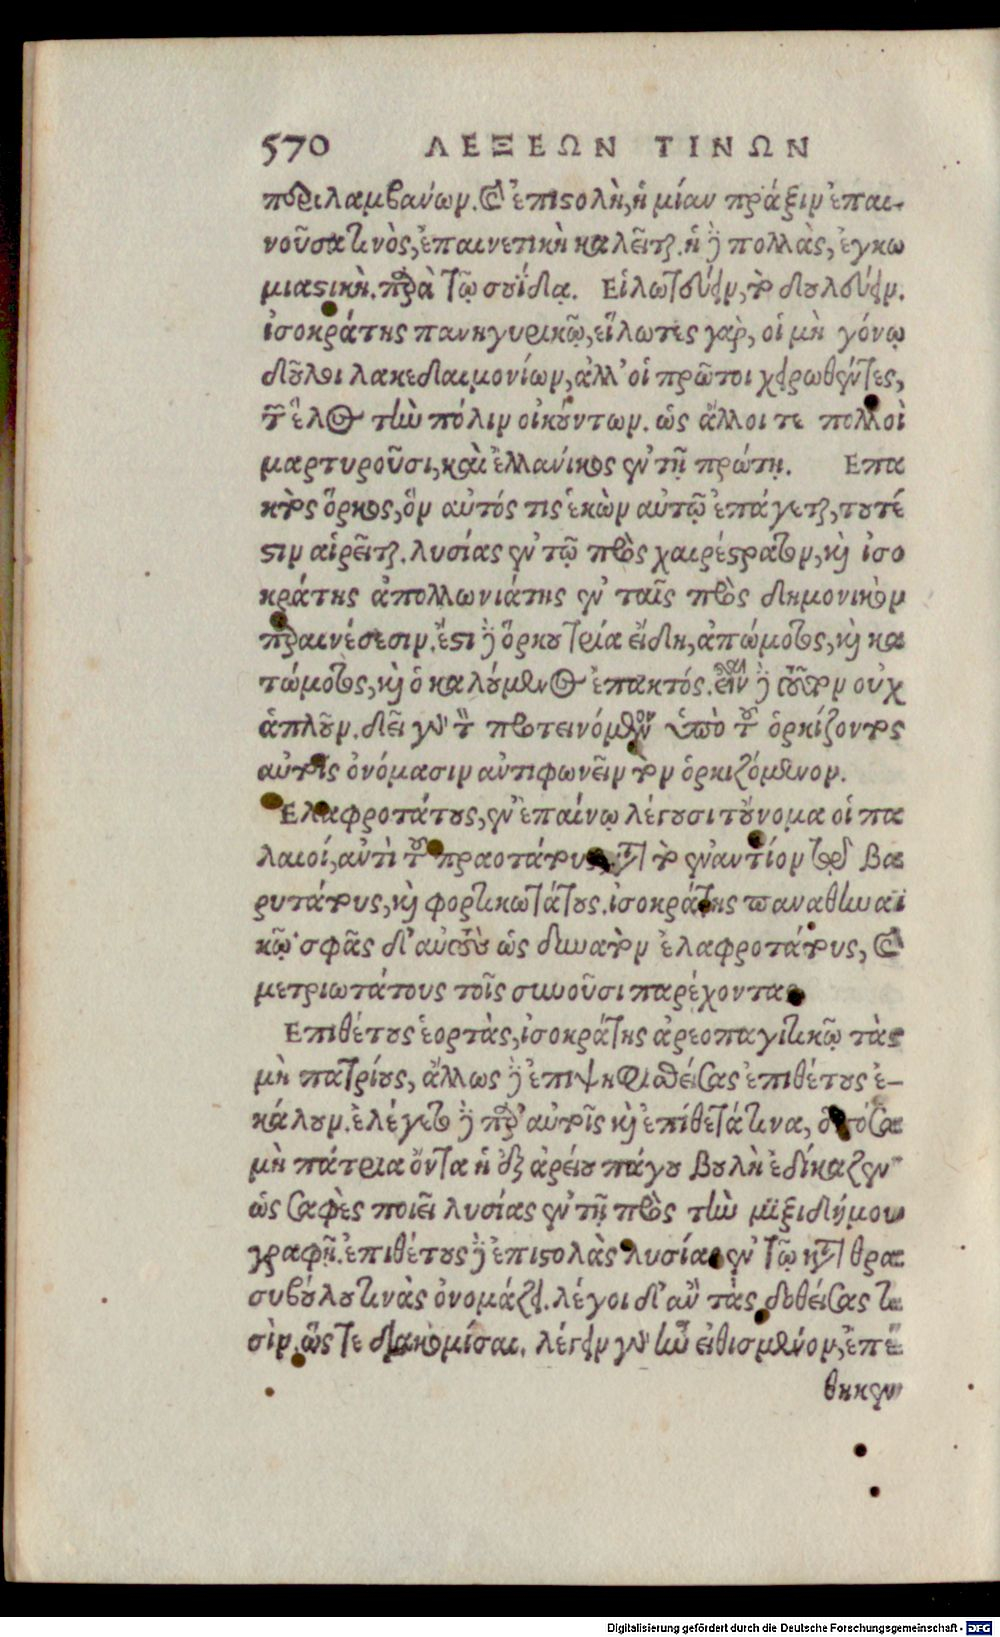 570 ΛΕΞΕΩΝ ΤΙΝΩΝ
περιλαμβανων. καὶ ἐπιστολὴ, ἡ μίαν πρᾶξιν ἐπαι-
νοῦσα τινὸς, ἐπαινετικὴ καλεῖται. ἡ δὲ πολλὰς, ἐγκω
μιαστικὴ. παρὰ τῷ σουΐδα. Εἱλωτεύειν, τὸ δουλεύειν.
ἰσοκράτης πανηγυρικῷ, εἵλωτες γὰρ, οἱ μὴ γόνῳ
δοῦλοι λακεδαιμονίων, ἀλλ' οἱ πρῶτοι χειρωθέντες,
τῶν ἕλος τὴν πόλιν οἰκούντων. ὡς ἄλλοι τε πολλοὶ
μαρτυροῦσι, καὶ ἑλλανίκος ἐν τῇ πρώτῃ. Επα
κτὸς ὅρκος, ὃν αὐτός τις ἑκὼν αὑτῷ ἐπάγεται, τουτέ
στιν αἱρεῖται. λυσίας ἐν τῷ πρὸς χαιρέστρατον, καὶ ἰσο
κράτης ἀπολλωνιάτης ἐν ταῖς πρὸς δημονικὸν
παραινέσεσιν. ἔστι δὲ ὅρκου τρία εἴδη, ἀπώμοτος, καὶ κα
τώμοτος, καὶ ὁ καλούμενος ἐπακτός. εἶναι δὲ τοῦτον οὐχ
ἁπλοῦν. δεῖ γὰρ τὸν προτεινόμενον ὑπὸ τοῦ ὁρκίζοντος
αὐτοῖς ὀνόμασιν ἀντιφωνεῖν τὸν ὁρκιζόμενον.
Ελαφροτάτους, ἐν ἐπαίνῳ λέγουσι τοὔνομα οἱ πα
λαιοί, ἀντὶ τοῦ πραοτάτους, κατὰ τὸ ἐναντίον τοῦ βα
ρυτάτους, καὶ φορτικωτάτους. ἰσοκράτης παναθηναϊ
κῷ· σφᾶς δ' αὐτοὺς ὡς δυνατὸν ἐλαφροτάτους, καὶ
μετριωτάτους τοῖς συνοῦσι παρέχοντας
Επιθέτους ἑορτὰς, ἰσοκράτης ἀρεοπαγιτικῷ τὰς
μὴ πατρίους, ἄλλως δὲ ἐπιψηφισθείσας ἐπιθέτους ἐ-
κάλουν. ἐλέγετο δὲ παρ' αὐτοῖς καὶ ἐπίθετά τινα, ὁπόσα
μὴ πάτρια ὄντα ἡ ἐξ ἀρείου πάγου βουλὴ ἐδίκαζεν
ὡς σαφὲς ποιεῖ λυσίας ἐν τῇ πρὸς τὴν μιξιδήμου
γραφῇ. ἐπιθέτους δὲ ἐπιστολὰς λυσίας ἐν τῷ κατὰ θρα
συβούλου τινὰς ὀνομάζει. λέγοι δ' ἂν τὰς δοθείσας τι
σὶν, ὥστε διακομίσαι. λέγειν γὰρ ἦν εἰθισμένον, ἐπέ
θηκεν
Digitalisierung gefördert durch die Deutsche Forschungsgemeinschaft - DFG